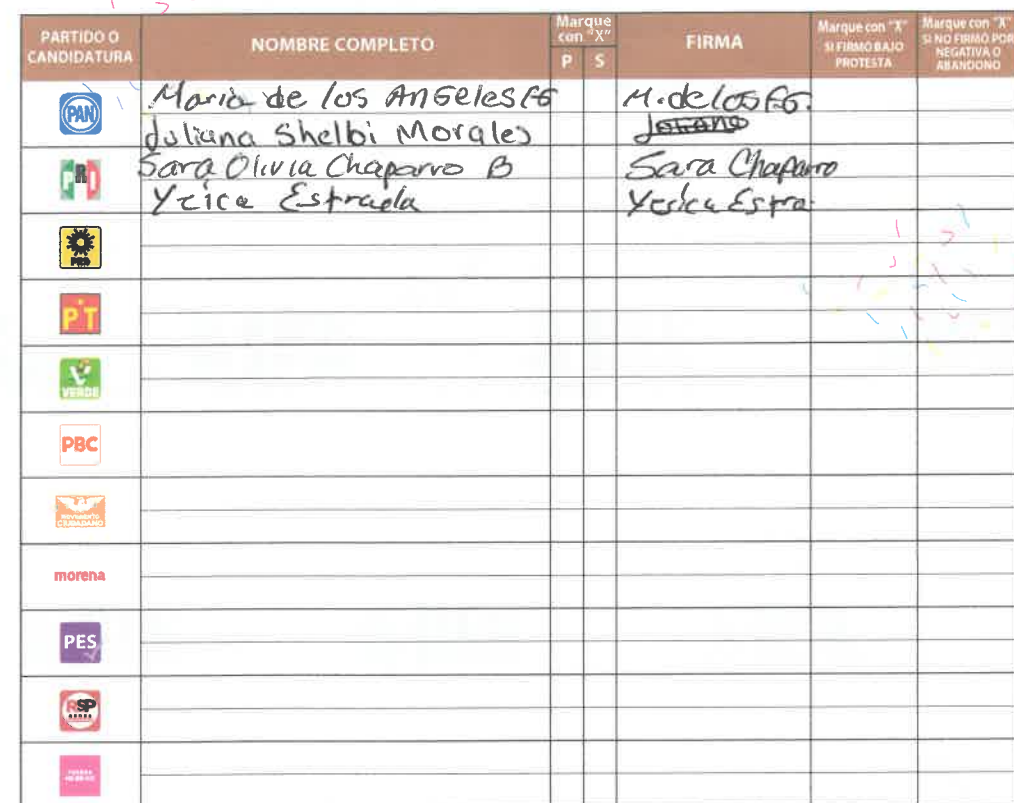 PARTIDO O CANDIDATURA
NOMBRE COMPLETO
Marque con "X"
P S
FIRMA
Marque con "X" SI FIRMÓ BAJO PROTESTA
Marque con "X" SI NO FIRMÓ POR NEGATIVA O ABANDONO
PAN
Maria de los Angeles FG M. de los FG.
Juliana Shelbi Morales Juliana
PRI
Sara Olivia Chaparro B Sara Chaparro
Yrica Estrada Yesica Estra
PRD
PT
VERDE
PBC
MOVIMIENTO CIUDADANO
morena
PES
RSP